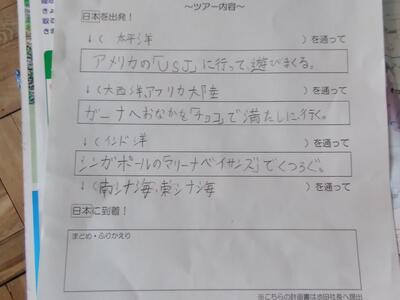 〜ツアー内容〜
日本を出発！
↓( 太平洋 )を通って
アメリカの「USJ」に行って、遊びまくる。
↓(大西洋、アフリカ大陸 )を通って
ガーナへおなかを「チョコ」で満たしに行く。
↓(インド洋 )を通って
シンガポールの「マリーナベイサンズ」でくつろぐ。
↓(南シナ海、東シナ海 )を通って
日本に到着！
まとめ・ふりかえり
※こちらの計画書は池田社長へ提出